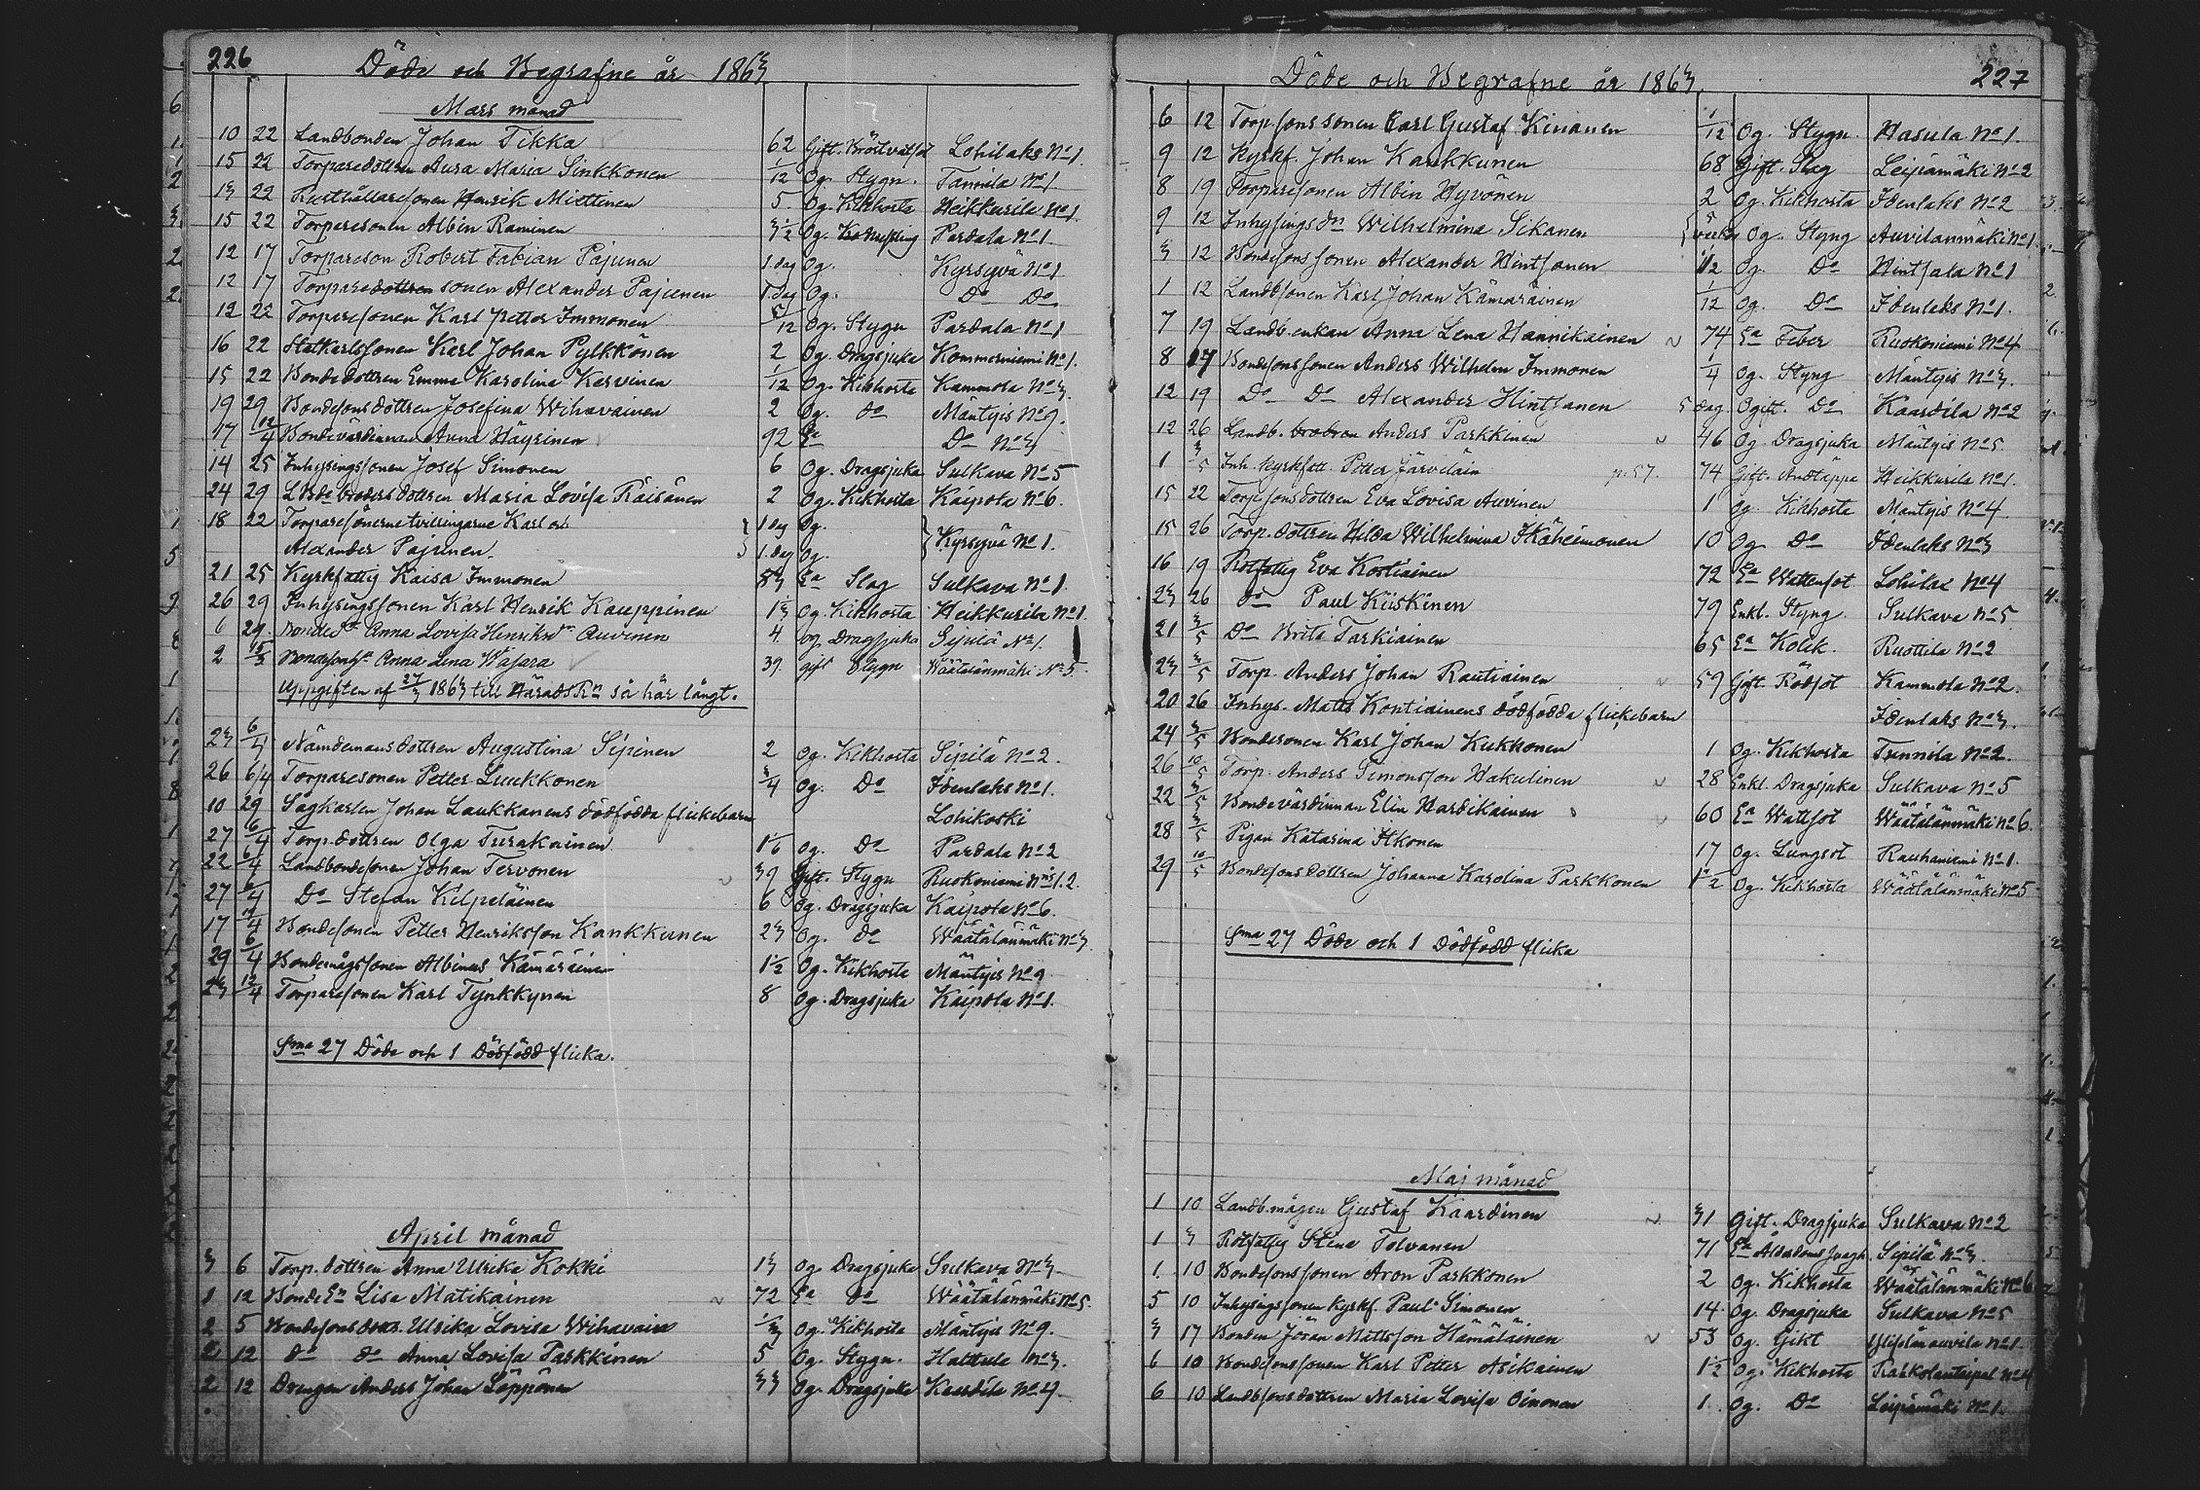 226
Döde och Begrafne år 1863
Mars månad
10 22 Landbonden Johan Tikka 62 Gift. Bröstvatsot Lohilaks No 1.
15 22 Torparedottren Aura Maria Sinkkonen 1/12 Og. Stygn. Tannila No 1.
13 22 Rusthållaresonen Henrik Miettinen 5 Og. Kikhosta Heikkurila No 1
15 22 Torparesonen Albin Raminen 3 1/2 Og. Pardala No 1.
12 17 Torpareson Robert Fabian Pajunen 1. dag Og. Kyrsyvä No 1
12 17 Torpare sonen Alexander Pajunen 1. dag Og. Do Do
12 22 Torparesonen Karl Petter Immonen 5/12 Og. Stygn Pardala No 1
16 22 Statkarlssonen Karl Johan Pylkkönen 2 Og. Dragsjuka Kommerniemi No 1.
15 22 Bondedottren Emma Karolina Karvinen 1/12 Og. Kikhosta Kammola No 3.
19 29 Bondesonsdottren Josefina Wihavainen 2 Og. do Mäntyis No 9.
17 12/4 Bondevärdinnan Anna Häyrinen 92 Ea Do No 3
14 25 Inhysingssonen Josef Simonen 6 Og. Dragsjuka Sulkava No 5
24 29 Lbde brodersdottren Maria Lovisa Räisänen 2 Og. Kikhosta Kaipola No 6.
18 22 Torparesönerne tvillingarne Karl och 1 dag Og.
Alexander Pajunen. 1. dag Og. Kyrsyvä No 1.
21 25 Kyrkfattig Kaisa Immonen 83 Ea Slag Sulkava No 1.
26 29 Inhysingssonen Karl Henrik Kauppinen 13 Og. Kikhosta Heikkurila No 1.
6 29. Anna Lovisa Henriksdr Auvinen 4. og. Dragsjuka Sipilä No 1.
2 15/3 Anna Lena Wasara 39. gift Stygn Wäätälänmäki No 5.
Uppgiften af 27/3 1863 till HäradsRn så här långt.
23 6/4 Nämdemansdottren Augustina Sipinen 2 Og. Kikhosta Sipilä No 2.
26 6/4 Torparesonen Petter Luukkonen 3/4 Og. Do Idenlaks No 1.
10 29 Sågkarlen Johan Laukkanens dödfödda flickebarn Lohikoski
27 6/4 Torp.dottren Olga Turakainen 1 1/6 Og. Do Pardala No 2
22 6/4 Landbondesonen Johan Tervonen 39 Gift. Stygn Ruokoniemi No 1. 2.
27 6/4 Do Stefan Kilpeläinen 6 Og. Dragsjuka Kaipola No 6.
17 12/4 Bondesonen Petter Henriksson Kankkunen 23 Og. do Wäätälänmäki No 3.
29 6/4 Bondemågssonen Albinus Kämäräinen 1 1/2 Og. Kikhosta Mäntyis No 9
23 12/4 Torparesonen Karl Tynkkynen 8 Og. Dragsjuka Kaipola No 1.
Sma 27 Döde och 1 Dödfödd flicka.
April månad
3 6 Torp.dottren Anna Ulrika Kokki 13 Og. Dragsjuka Sulkava No 3.
1 12 Bonde En Lisa Matikainen 72 Ea do Wäätälänmäki No 5.
2 5 Bondesonsdottr. Ulrika Lovisa Wihavain Og. Kikhosta Mäntyis No 9.
2 12 do do Anna Lovisa Parkkinen 5 Og. Stygn. Halttula No 3.
2 12 Drengen Anders Johan Löppönen 33 Og. Dragsjuka Kaardila No 4.
227
Döde och Begrafne år 1863.
6 12 Torp.sons sonen Carl Gustaf Kinanen 1/12 Og. Stygn. Hasula No 1.
9 12 Kyrkf. Johan Kankkunen 68 Gift. Slag Leipämäki No 2
8 19 Torparesonen Albin Hyvönen 2 Og. Kikhosta Idenlaks No 2
9 12 Inhysings dn Wilhelmina Sikanen 5 veckor Og. Styng Auvilanmäki No 1.
3 12 Bondesonssonen Alexander Hintsanen 1/12 Og. Do Hintsala No 1
1 12 Landbsonen Karl Johan Kämäräinen 1/12 Og. Do Idenlaks No 1.
7 19 Landb.enkan Anna Lena Hannikainen 74 Ea Feber Ruokoniemi No 4
8 17 Bondesonssonen Anders Wilhelm Immonen 1/4 Og. Styng Mäntyis No 3.
12 19 Do Do Alexander Hintsanen 5 dag. Ogift. Do Kaardila No 2
12 26 Landb. Anders Parkkinen 46 Og. Dragsjuka Mäntyis No 5.
1 3/5 Inh. Kyrkfatt. Petter Järveläin p. 57. 74 Gift. Andtäppa Heikkurila No 1.
15 22 Torpsonsdottren Eva Lovisa Auvinen 1 Og. Kikhosta Mäntyis No 4
15 26 Torp.dottren Hilda Wilhelmina Ikäheimonen 10 Og. Do Idenlaks No 3
16 19 Rotfattig Eva Kostiainen 72 Ea Wattensot Lohilax No 4
23 26 do Paul Kiiskinen 79 Enkl. Styng Sulkava No 5
21 3/5 Do Brita Tarkiainen 65 Ea Kolik. Ruottila No 2
23 3/5 Torp. Anders Johan Rautiainen 59 Gift. Rödsot Kammola No 2.
20 26 Inhys. Matts Kontiainens dödfödda flickebarn Idenlaks No 3.
24 3/5 Bondesonen Karl Johan Kukkonen 1 Og. Kikhosta Tannila No 2.
26 10/5 Torp. Anders Simonsson Hakulinen 28 Enkl. Dragsjuka Sulkava No 5
22 3/5 Bondevärdinnan Elin Hardikainen 60 Ea Wattsot Wäätälänmäki No 6.
28 3/5 Pigan Katarina Ikonen 17 Og. Lungsot Rauhaniemi No 1.
29 10/5 Bondesonsdottren Johanna Karolina Parkkonen 1 1/2 Og. Kikhosta Wäätälänmäki No 5
Sma 27 Döde och 1 Dödfödd flicka
Maj månad
1 10 Landb.mågen Gustaf Kaardinen 31 Gift. Dragsjuka Sulkava No 2
1 3 Rotfattig Stina Tolvanen 71 Ea Ålderdoms svagh. Sipilä No 3.
1. 10 Bondesonssonen Aron Parkkonen 2 Og. Kikhosta Wäätälänmäki No 6
5 10 Inhysingssonen Kyrkf. Paul Simonen 14 Og. Dragsjuka Sulkava No 5
3 17 Bonden Jöran Mattsson Hämäläinen 53 Og. Gikt No 1.
6 10 Bondesonssonen Karl Petter Asikainen 1 1/2 Og. Kikhosta No 4
6 10 Landbsonsdottren Maria Lovisa Oinonen 1. Og. Do Leipämäki No 1.